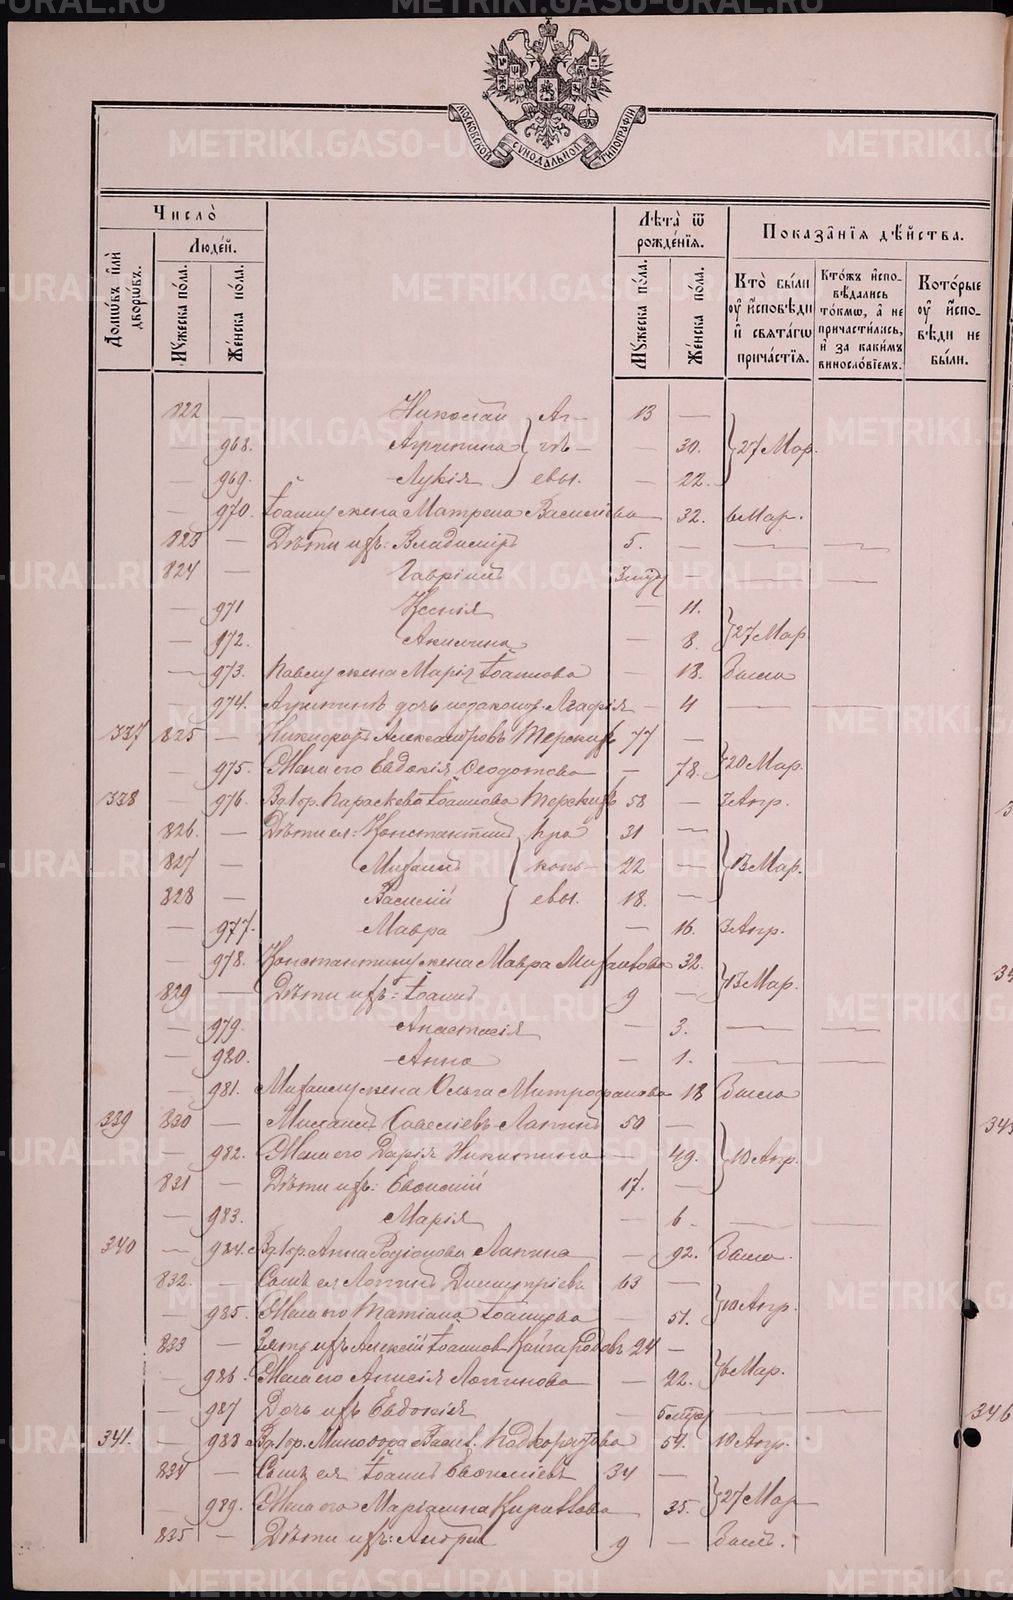 МОСКОВСКОЙ СѴНОДАЛЬНОЙ ТИПОГРАФІИ
Число̀
Домѡвъ и҆лѝ дворѡ́въ.
Люде́й.
Мꙋжеска по́ла.
Же́нска по́ла.
Лѣта̀ ѿ рожде́нїѧ.
Мꙋжеска по́ла.
Же́нска по́ла.
Показа̑нїѧ дѣ́йства.
Кто̀ бы́ли оу҆ и҆сповѣди и҆ свѧта́гѡ прича́стїѧ.
Кто́жъ и҆спо-вѣдались то́кмѡ, а҆ не причасти́лись, и҆ за каки́мъ винослові́емъ.
Кото́рые оу҆ и҆спо-вѣди не бы́ли.
822 — Николай Ал- 13 —
— 968. Агрипина — 30. 27 Мар.
— 969. Лукія евы. — 22.
— 970. Іоанну жена Матрена Васильева — 32. 6 Мар.
823 — Дѣти ихъ: Владиміръ 5. — — —
824 — Гавріилъ — — —
— 971 Ксенія — 11.
— 972. Акилина — 8. 27 Мар.
— 973. Павлу жена Марія Іоаннова — 18. была
— 974. дочь незакон. Агафія — 4 — —
337 825 — Никифоръ Александровъ Терскихъ 77 —
— 975. Жена его Евдокія Ѳеодотова — 78. 20 Мар.
338 — 976. Вдвр. Параскева Іоаннова Терскихъ 58 — 3 Апр.
826. — Дѣти ея: Константинъ Про 31 —
827 — Михаилъ копь- 22 — 13 Мар.
828 — Василій евы. 18. —
— 977. Мавра — 16. 3 Апр.
— 978. Константину жена Мавра Михайлова 32.
829 — Дѣти ихъ: Іоаннъ 9 — 13 Мар.
— 979. Анастасія — 3. — —
— 980. Анна — 1. — —
— 981. Михаилу жена Ольга Митрофанова 18 была
339 830 — Михаилъ Савельевъ Лапинъ 50 —
— 982. Жена его Дарія Никитина — 49. 10 Апр.
831 — Дѣти ихъ: Евѳимій 17. —
— 983. Марія — 6. — —
340 — 984. Вдвр. Анна Родіонова Лапина — 92. была.
832. — Сынъ ея Логгинъ Димитріевъ 63 —
— 985. Жена его Татіана Іоаннова — 51. 10 Апр.
833 — Зять ихъ Алексій Іоаннов Кайгородовъ 24 —
— 986. Жена его Анисія Логгинова — 22. 6 Мар.
— 987 Дочь ихъ Евдокія — — —
341. — 988 Вдвр. Минодора Васил. Подкорытова 54. 10 Апр.
834 — Сынъ ея Іоаннъ 34 —
— 989. Жена его Маріамна — 35. 27 Мар
835 — Дѣти ихъ: Андрей 9 — былъ.
346